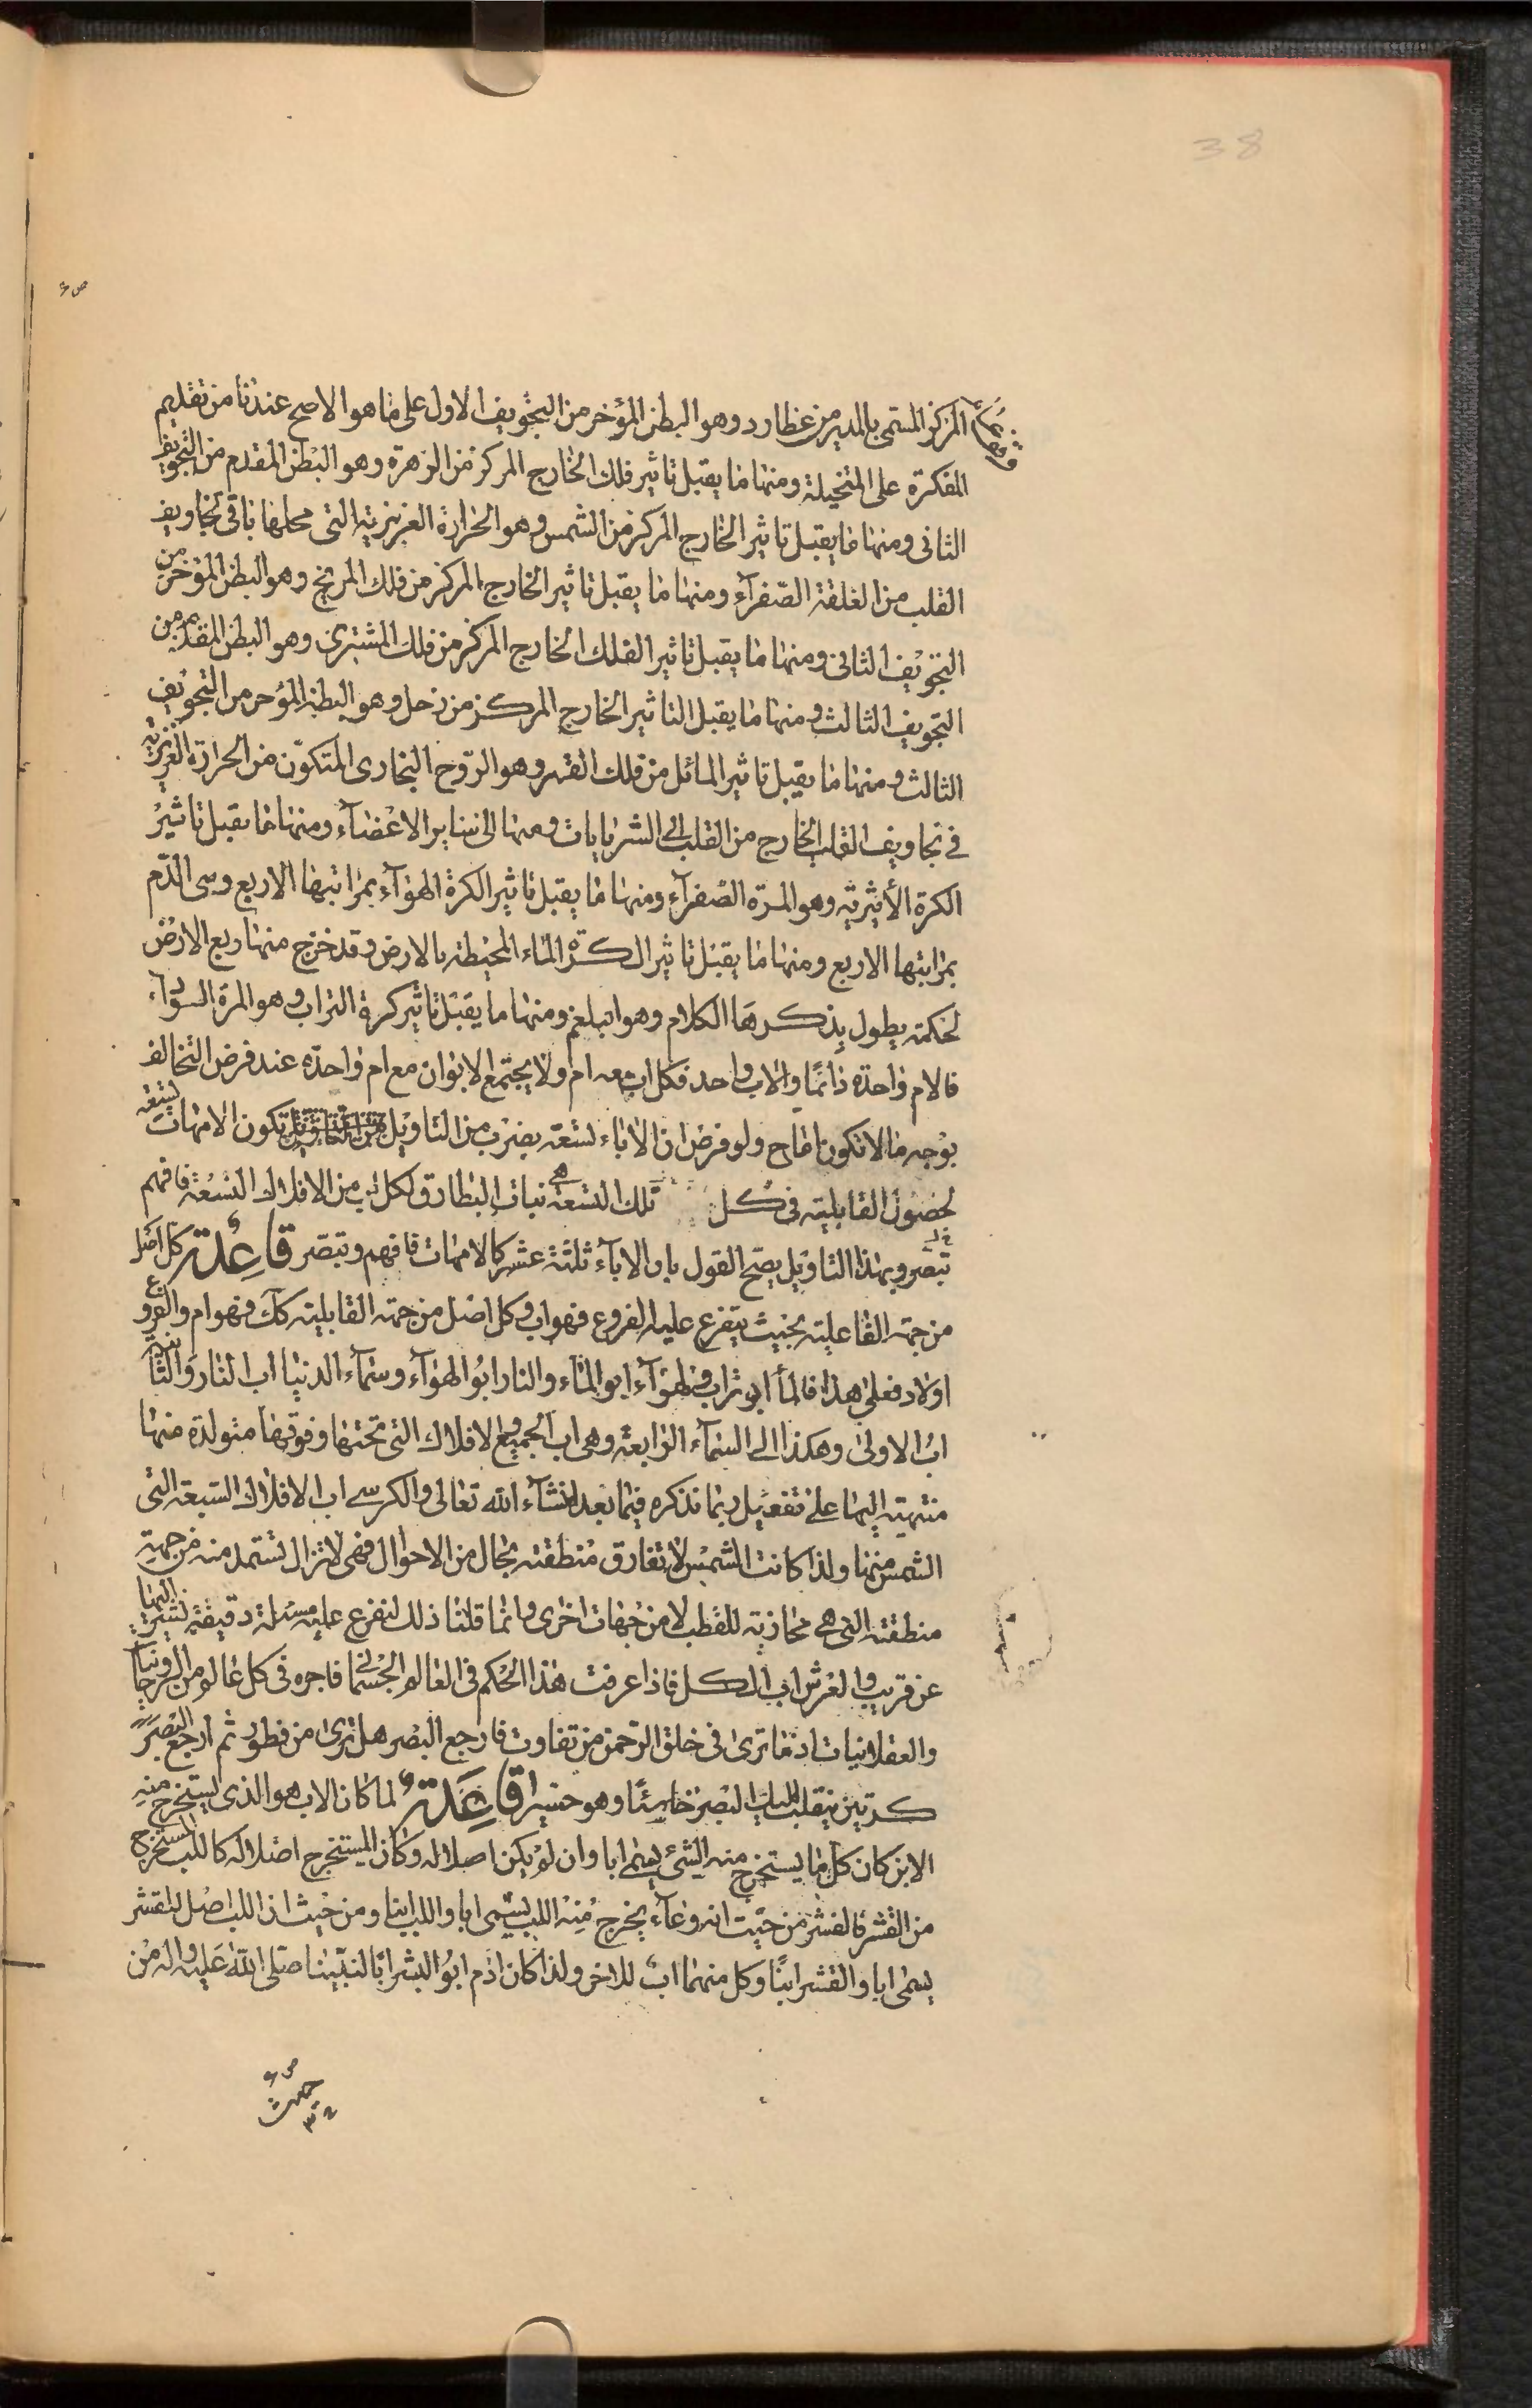 38
ص ۶
المركز المسمى بالمدير من عطارد وهو البطن المؤخر من التجويف الاول على ما هو الاصح عندنا من تقديم
المفكرة على المتخيلة ومنها ما يقبل تاثير فلك الخارج المركز من الزهرة وهو البطن المقدم من التجويف
الثانى ومنها ما يقبل تاثير الخارج المركز من الشمس وهو الحرارة الغريزية التى محلها باقى تجاويف
القلب من العلقة الصفرآء ومنها ما يقبل تاثير الخارج المركز من فلك المريخ وهو البطن المؤخر من
التجويف الثانى ومنها ما يقبل تاثير الفلك الخارج المركز من فلك المشترى وهو البطن المقدم من
التجويف الثالث ومنها ما يقبل التاثير الخارج المركز من زحل وهو البطن المؤخر من التجويف
الثالث ومنها ما يقبل تاثير المائل من فلك القمر وهو الروح البخارى المتكون من الحرارة الغريزية
فى تجاويف القلب الخارج من القلب الى الشريانات ومنها الى ساير الاعضآء ومنها ما يقبل تاثير
الكرة الأثيرية وهو المرة الصفرآء ومنها ما يقبل تاثير الكرة الهوآء بمراتبها الاربع وهى الدم
بمراتبها الاربع ومنها ما يقبل تاثير الكرة المآء المحيطة بالارض وقد خرج منها ربع الارض
لحكمة يطول بذكرها الكلام وهو البلغم ومنها ما يقبل تاثير كرة التراب وهو المرة السودآء
فالام واحدة دائما والاب واحد فكل اب معه ام ولا يجتمع الابوان مع ام واحدة عند فرض التخالف
بوجه ما لا تكون نكاح ولو فرض ان الاباء تسعة بضرب من التاويل تكون الامهات تسعة
لحصول القابلية فى كل تلك التسعة هى نبات البطارق لكل اب من الافلاك التسعة فافهم
تبصر وبهذا التاويل يصح القول بان الابآء ثلثة عشر كالامهات فافهم وتبصر قاعدة كل اصل
من جهة الفاعلية بحيث يتفرع عليه الفروع فهو اب وكل اصل من جهة القابلية كك فهو ام والفروع
اولاد فعلى هذا فالمآ ابو تراب والهوآء ابو المآء والنار ابو الهوآء وسمآء الدنيا اب النار والثانية
اب الاولى وهكذا الى السمآء الرابعة وهى اب الجميع والافلاك التى تحتها وفوقها متولدة منها
منتهية اليها على تفصيل ربما نذكره فيما بعد انشآء الله تعالى والكرسى اب الافلاك السبعة التى
الشمس منها ولذا كانت الشمس لا تفارق منطقته بحال من الاحوال فهى لا تزال تستمد منه من جهة
منطقته التى هى محاذية للقطب لا من جهات اخرى وانما قلنا ذلك لتفرع عليه مسئلة دقيقة نشير اليها
عن قريب والعرش اب الكل فاذا عرفت هذا الحكم فى العالم الجسمانى فاجره فى كل عالم من الروحانيات
والعقلانيات اذ ما ترى فى خلق الرحمن من تفاوت فارجع البصر هل ترى من فطور ثم ارجع البصر
كرتين ينقلب اليك البصر خاسئا وهو حسير قاعدة لما كان الاب هو الذى يستخرج منه
الابن كان كل ما يستخرج منه الشئ يسمى ابا وان لم يكن اصلا له وكان المستخرج اصلا له كاللب المستخرج
من القشر فالقشر من حيث انه وعآء يخرج منه اللب يسمى ابا واللب ابنا ومن حيث ان اللب اصل للقشر
يسمى ابا والقشر ابنا وكل منهما اب للاخر ولذا كان ادم ابو البشر ابا لنبينا صلى الله عليه واله من
ص ۶